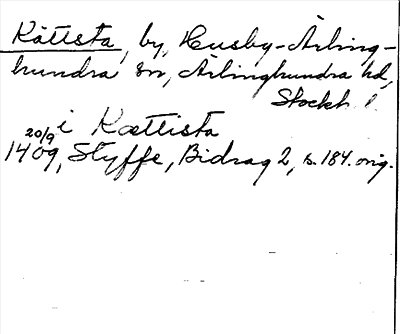 Kättsta, by, Husby-Ärling-
hundra sn, Ärlinghundra hd,
Stockh. l
i Kættista
20/9 1409, Styffe, Bidrag 2, s. 184. orig.